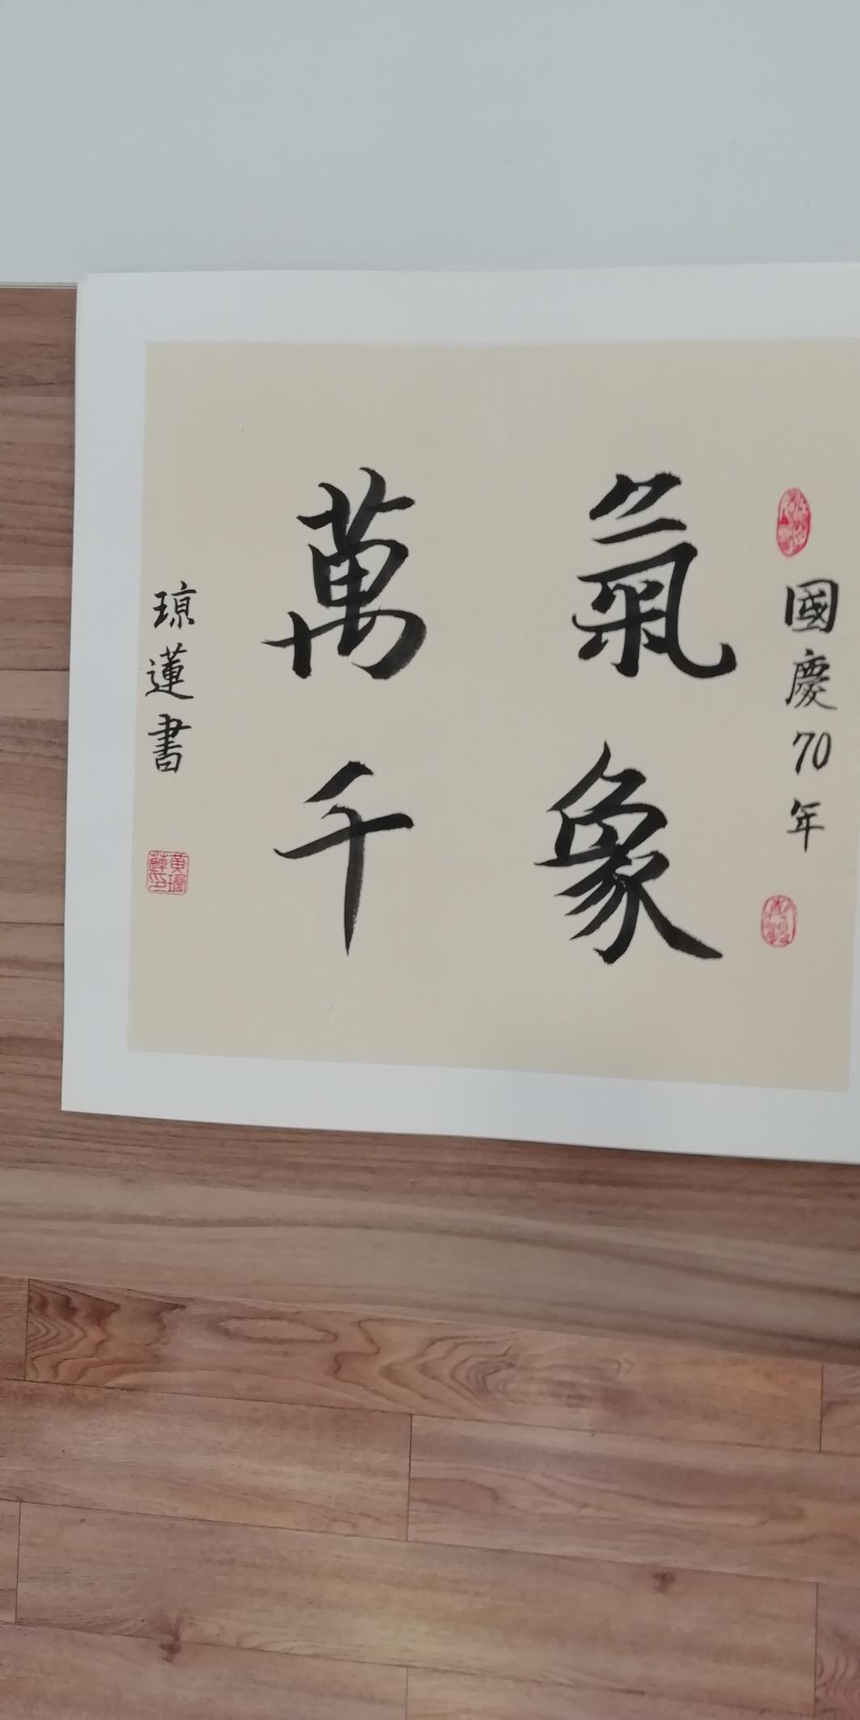 國慶70年
氣象
萬千
琼蓮書